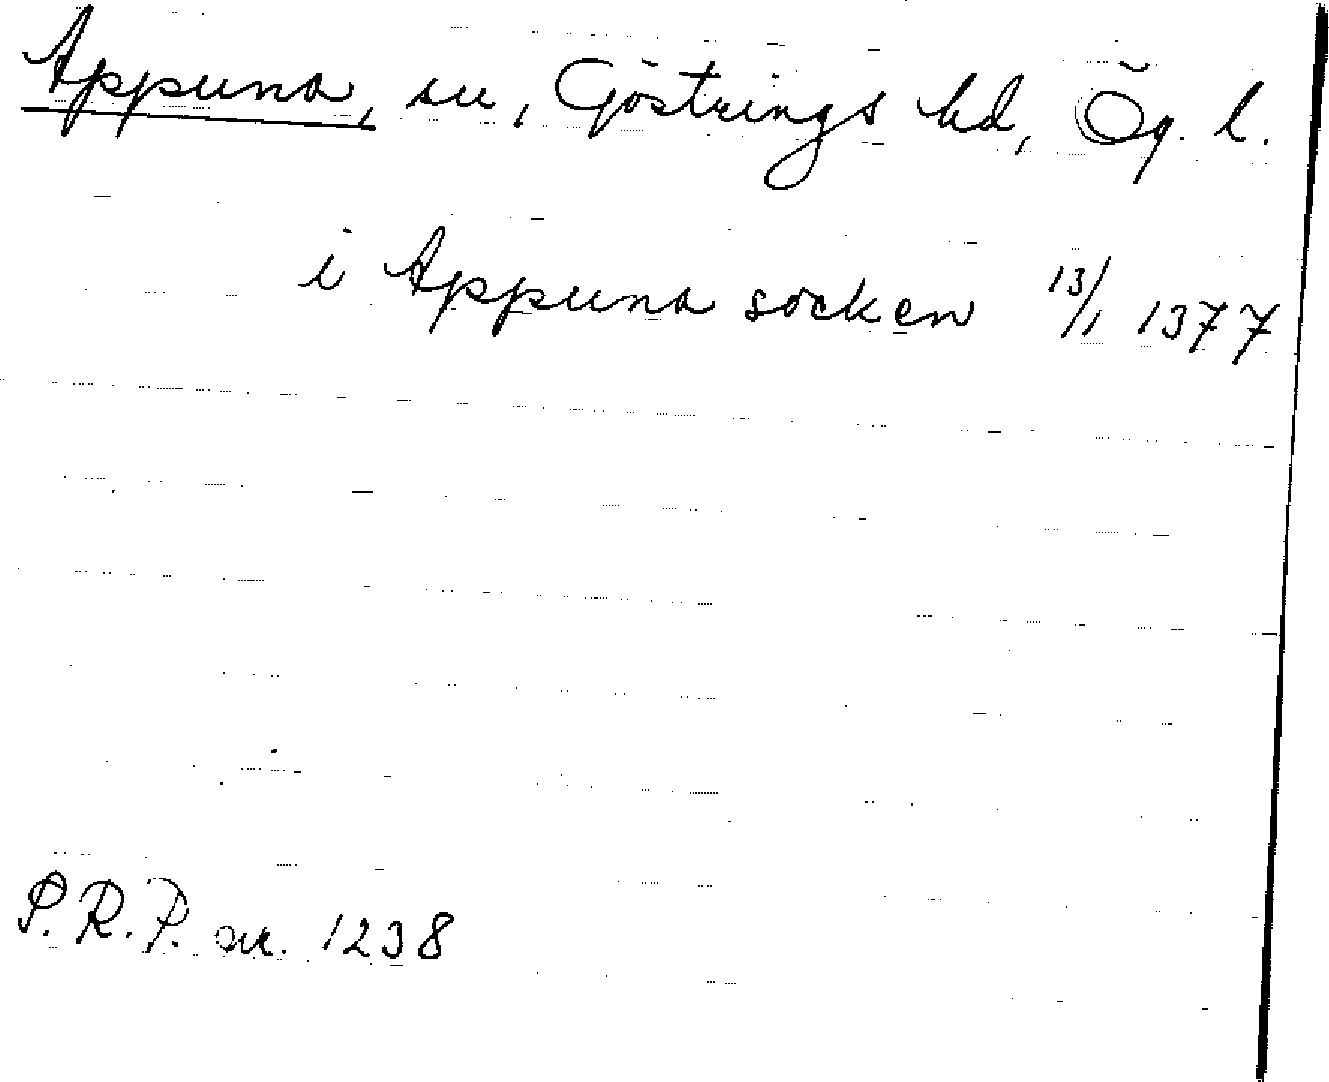 Appuna, sn, Göstrings hd, Ög. l.
i Appuna socken 13/1 1377
S.R.P. nr. 1238